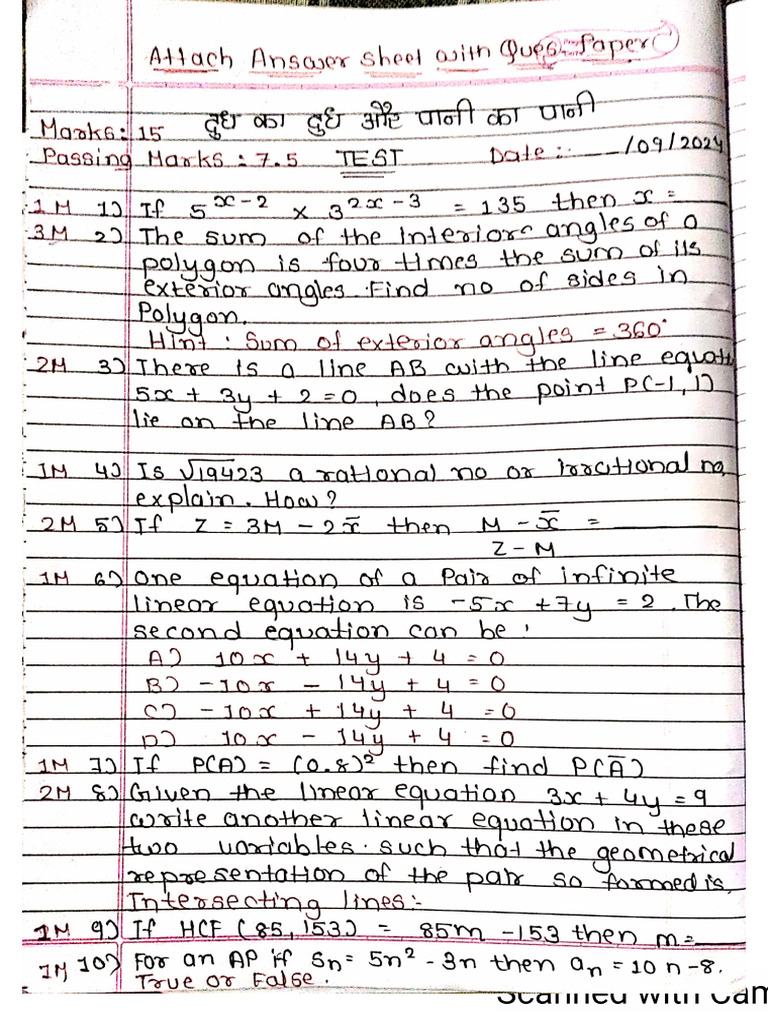 Attach Answer sheet with Ques. Paper
Marks: 15 दुध का दुध और पानी का पानी
Passing Marks: 7.5 TEST Date: __/09/2024
1M 1) If 5^{x-2} × 3^{2x-3} = 135 then x =
3M 2) The sum of the interior angles of a
polygon is four times the sum of its
exterior angles. Find no of sides in
Polygon.
Hint: Sum of exterior angles = 360°
2M 3) There is a line AB with the line equati
5x + 3y + 2 = 0, does the point P(-1, 1)
lie on the line AB?
1M 4) Is √19423 a rational no or irrational no,
explain. How?
2M 5) If Z = 3M - 2x̄ then M - x̄ = ____
Z - M
1M 6) One equation of a Pair of infinite
linear equation is -5x + 7y = 2. The
second equation can be,
A) 10x + 14y + 4 = 0
B) -10x - 14y + 4 = 0
C) -10x + 14y + 4 = 0
D) 10x - 14y + 4 = 0
1M 7) If P(A) = (0.8)² then find P(Ā)
2M 8) Given the linear equation 3x + 4y = 9
write another linear equation in these
two variables. such that the geometrical
representation of the pair so formed is,
Intersecting lines:-
1M 9) If HCF (85, 153) = 85m - 153 then m = ____
1M 10) For an AP if Sn = 5n² - 3n then an = 10n - 8.
True or False.
Scanned with Cam